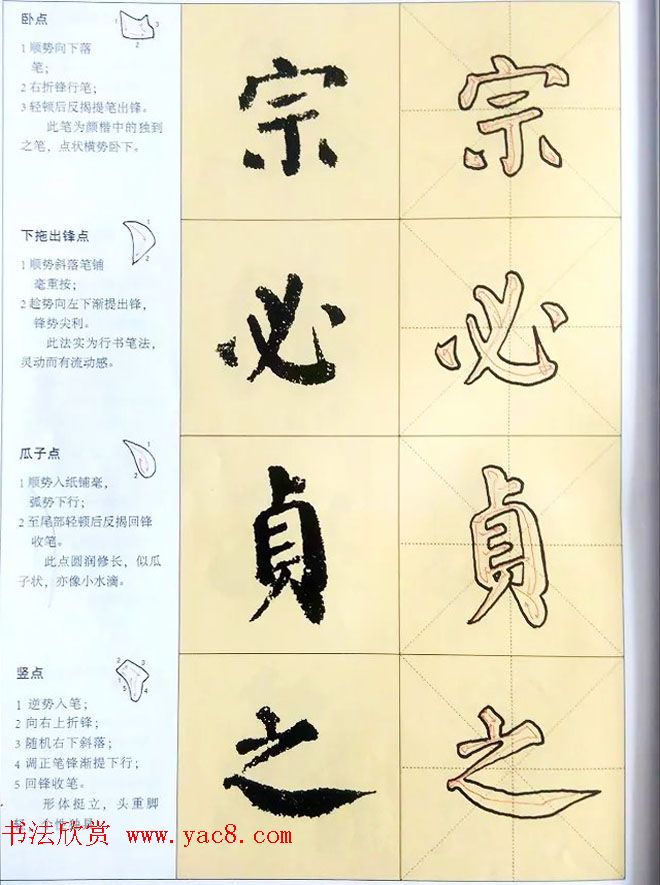 卧点
1 3
2
1 顺势向下落
笔；
2 右折锋行笔；
3 轻顿后反揭提笔出锋。
此笔为颜楷中的独到
之笔，点状横势卧下。
宗 宗
下拖出锋点
1
2
1 顺势斜落笔铺
毫重按；
2 趁势向左下渐提出锋，
锋势尖利。
此法实为行书笔法，
灵动而有流动感。
必 必
瓜子点
1
2
1 顺势入纸铺毫，
弧势下行；
2 至尾部轻顿后反揭回锋
收笔。
此点圆润修长，似瓜
子状，亦像小水滴。
貞 貞
竖点
2 3
1 5 4
1 逆势入笔；
2 向右上折锋；
3 随机右下斜落；
4 调正笔锋渐提下行；
5 回锋收笔。
形体挺立，头重脚
之 之
书法欣赏 www.yac8.com